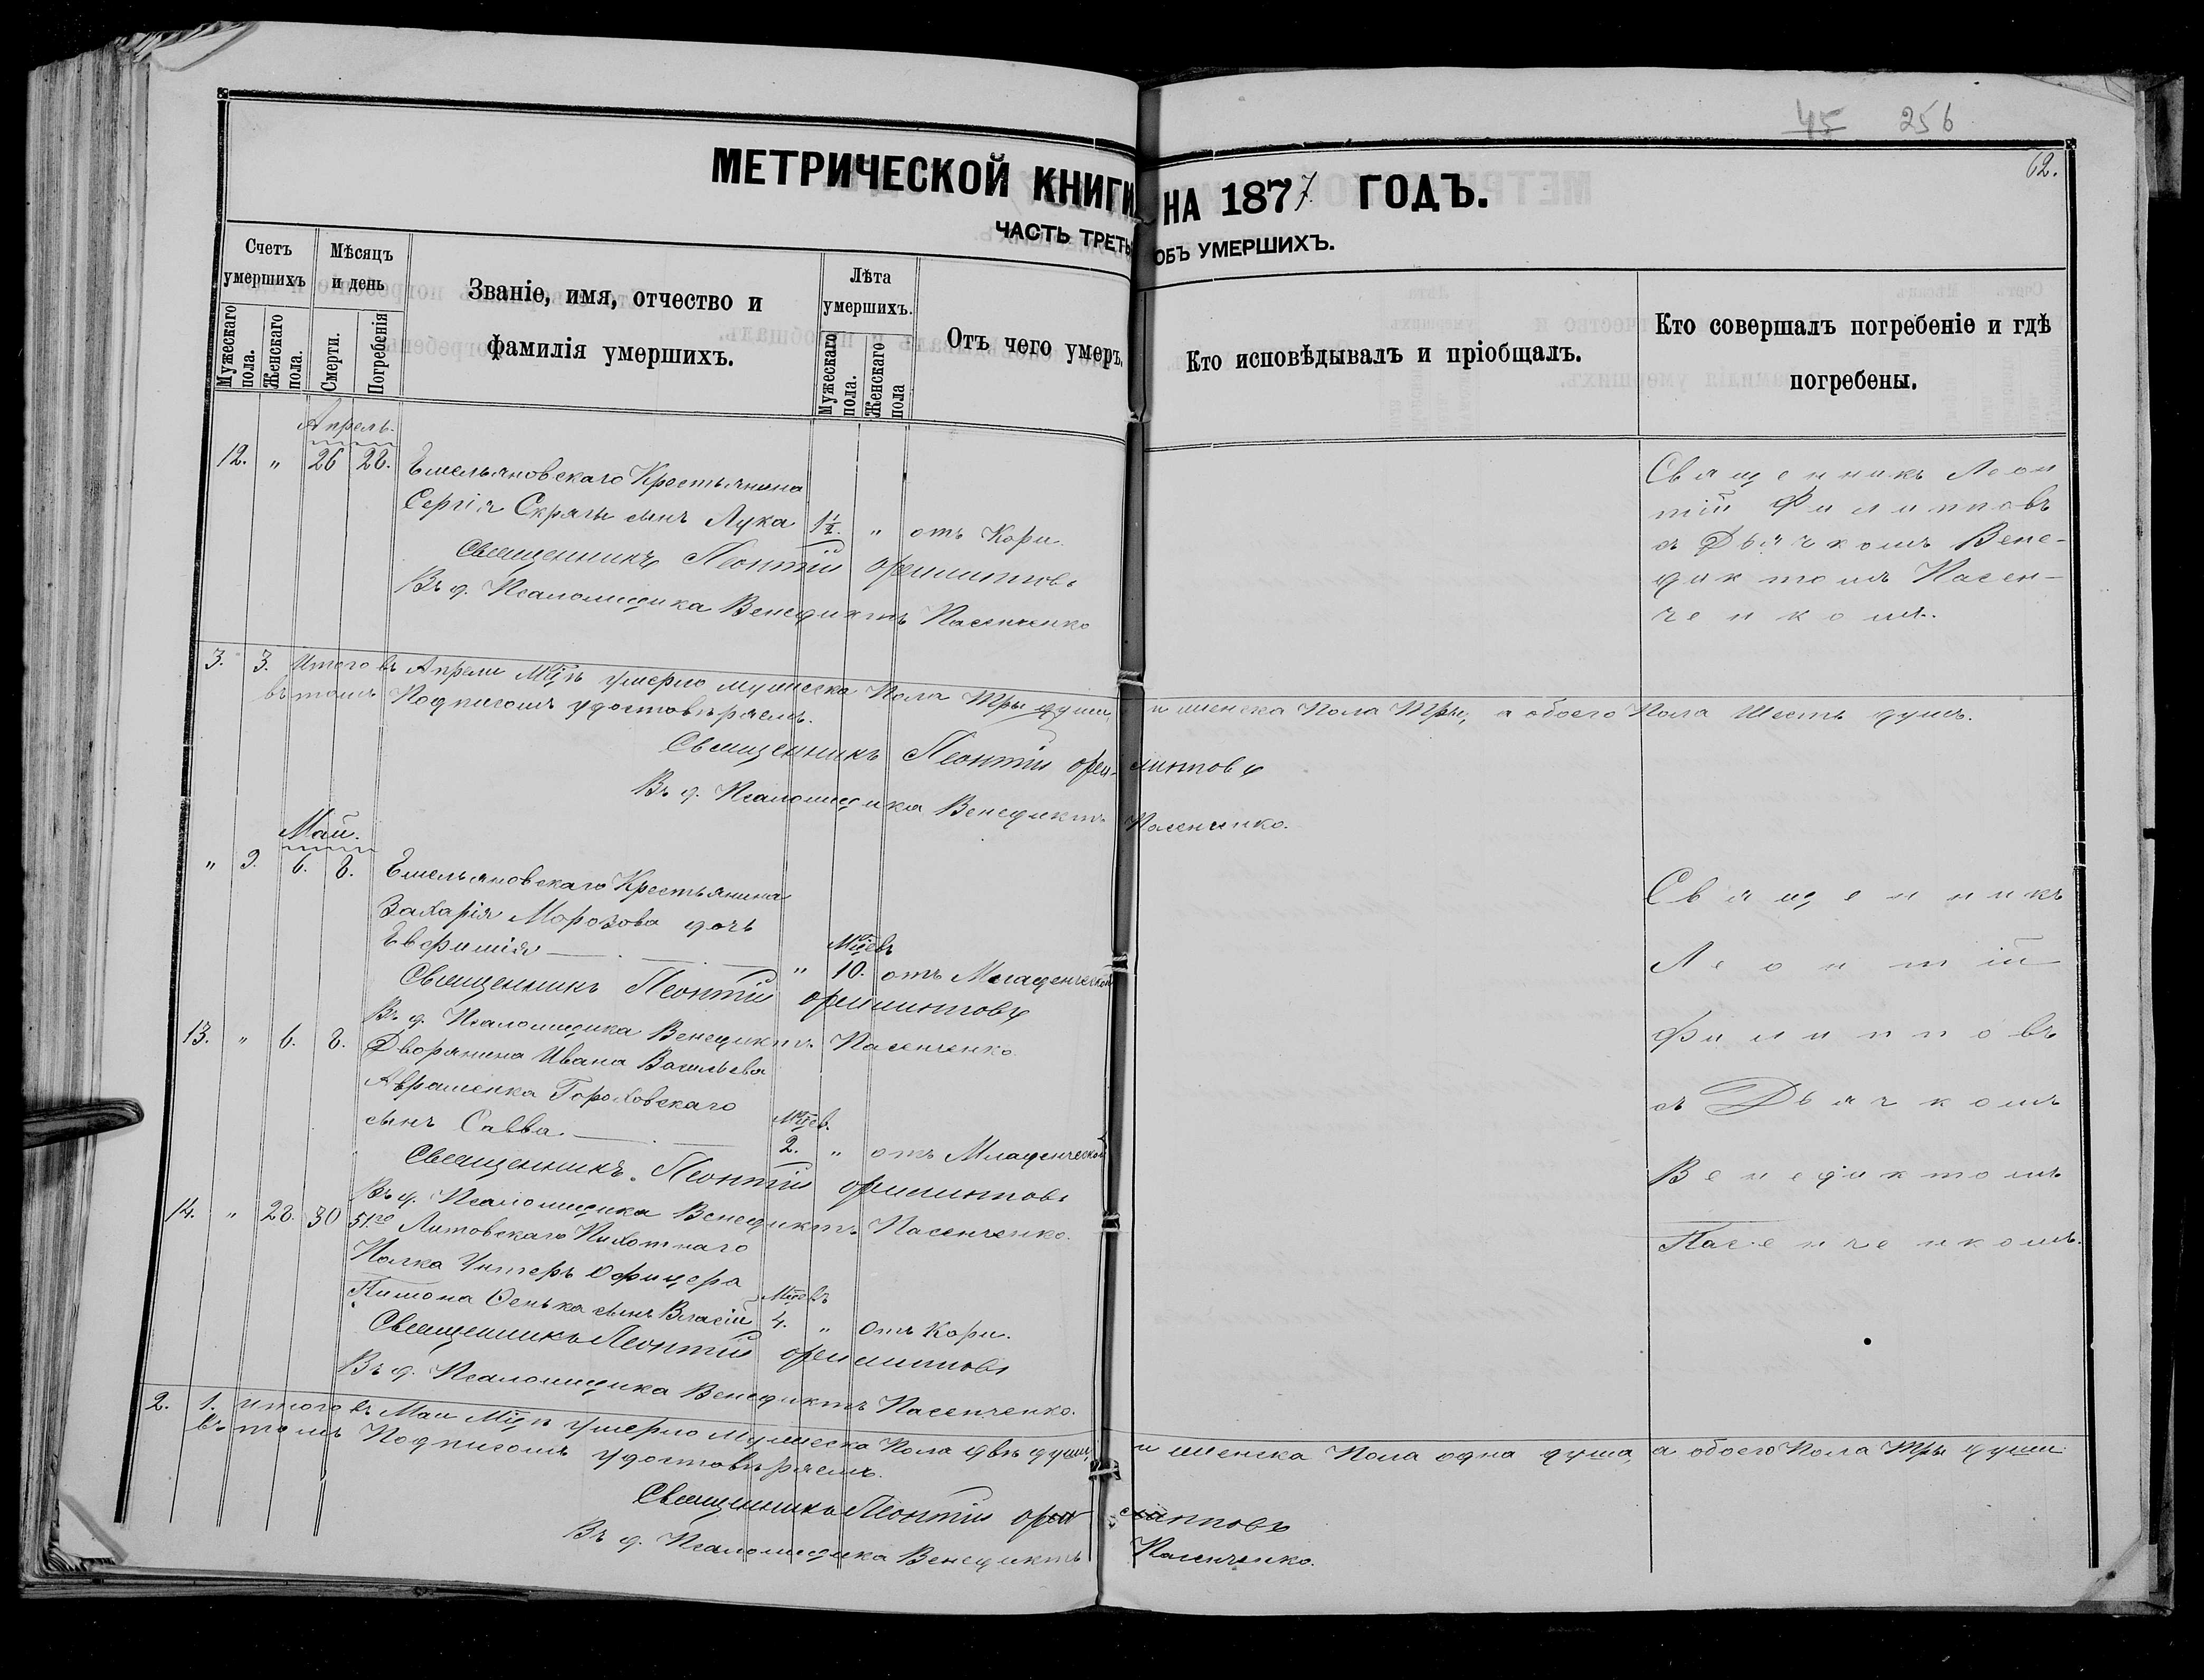 45 256
62.
МЕТРИЧЕСКОЙ КНИГИ НА 1877 ГОДЪ.
ЧАСТЬ ТРЕТЬ ОБЪ УМЕРШИХЪ.
Счетъ умершихъ
Мѣсяцъ и день
Званіе, имя, отчество и фамилія умершихъ.
Лѣта умершихъ.
Отъ чего умеръ.
Кто исповѣдывалъ и пріобщалъ.
Кто совершалъ погребеніе и гдѣ погребены.
Мужескаго пола.
Женскаго пола.
Смерти.
Погребенія
Мужескаго пола.
Женскаго пола
Апрель.
12. " 26 28. Емельяновскаго Крестьянина
Сергія Скряги сынъ Лука 1½. " отъ Кори.
Священникъ Леонтій Филипповъ
Въ д. Псаломщика Венедиктъ Пасенченко
Священникъ Леон
тій Филипповъ
съ Дьячкомъ Вене-
диктомъ Пасен-
ченкомъ.
3. 3. Итого въ Апрели Мцѣ умерло мужеска Пола Три души, и женска Пола Три, а обоего Пола Шесть душъ.
въ томъ Подписомъ удостовѣряемъ.
Священникъ Леонтій Филипповъ
Въ д. Псаломщика Венедиктъ Пасенченко.
Май.
" 9. 6. 8. Емельяновскаго Крестьянина
Захарія Морозова дочь
Мцевъ
Евфимія " 10. отъ Младенческой
Священникъ Леонтій Филипповъ
Въ д. Псаломщика Венедиктъ Пасенченко.
13. " 6. 8. Дворянина Ивана Васильева
Авраменка Гороховскаго
Мцев.
сынъ Савва 2. " отъ Младенческой
Священникъ Леонтій Филипповъ
Въ д. Псаломщика Венедиктъ Пасенченко.
14. " 28. 30 51го Литовскаго Пихотнаго
Полка Унтеръ Офицера
Мцевъ
Пимона Сенька сынъ Власій 4. " Отъ Кори.
Священникъ Леонтій Филипповъ
Въ д. Псаломщика Венедиктъ Пасенченко.
Священникъ
Леонтій
Филипповъ
съ Дьячкомъ
Венедиктомъ
Пасенченкомъ.
2. 1. Итого въ Маи Мцѣ умерло Мужеска Пола двѣ души, и женска Пола одна душа, а обоего Пола Три души
въ томъ Подписомъ удостовѣряемъ.
Священникъ Леонтій Филипповъ
Въ д. Псаломщика Венедиктъ Пасенченко.